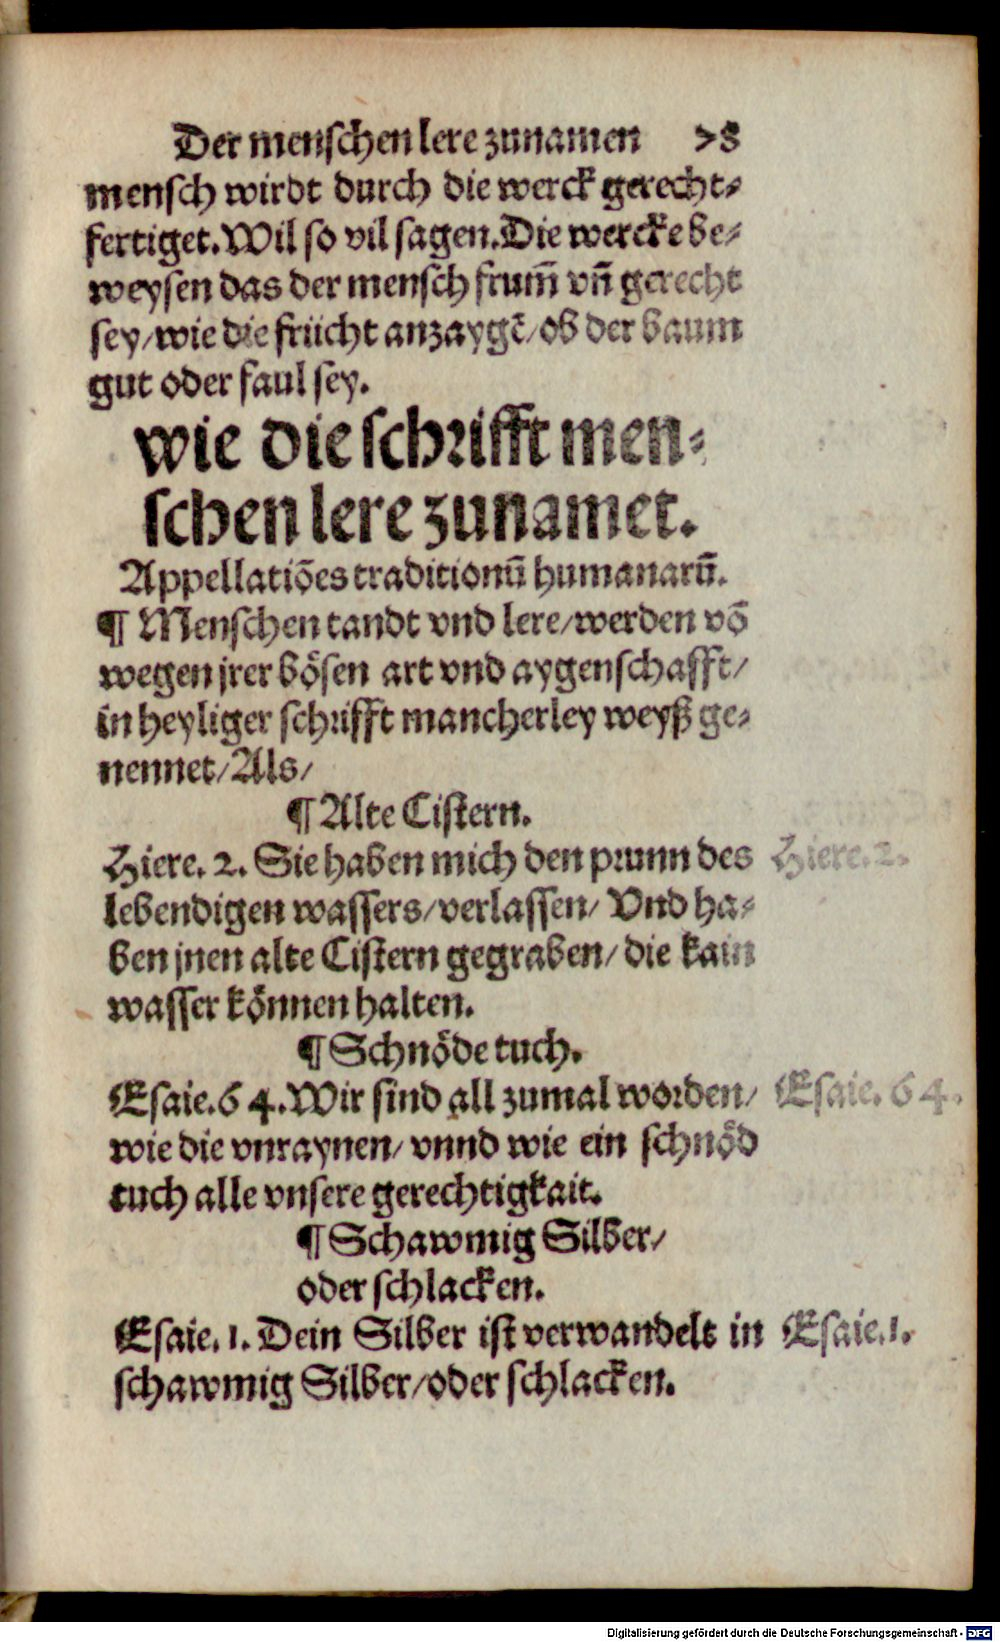 Der menschen lere zunamen 78
mensch wirdt durch die werck gerecht⸗
fertiget. Wil so vil sagen. Die wercke be⸗
weysen das der mensch frum̄ vn̄ gerecht
sey/wie die frücht anzaygē/ob der baum
gut oder faul sey.
wie die schrifft men⸗
schen lere zunamet.
Appellatiōes traditionū humanarū.
¶ Menschen tandt vnd lere/werden vō
wegen jrer bösen art vnd aygenschafft/
in heyliger schrifft mancherley weyß ge⸗
nennet/Als/
¶ Alte Cistern.
Hiere. 2. Sie haben mich den prunn des Hiere. 2.
lebendigen wassers/verlassen/ Vnd ha⸗
ben jnen alte Cistern gegraben/die kain
wasser können halten.
¶ Schnöde tuch.
Esaie. 64. Wir sind all zumal worden/ Esaie. 64.
wie die vnraynen/ vnnd wie ein schnöd
tuch alle vnsere gerechtigkait.
¶ Schawmig Silber/
oder schlacken.
Esaie. 1. Dein Silber ist verwandelt in Esaie. 1.
schawmig Silber/oder schlacken.
Digitalisierung gefördert durch die Deutsche Forschungsgemeinschaft - DFG